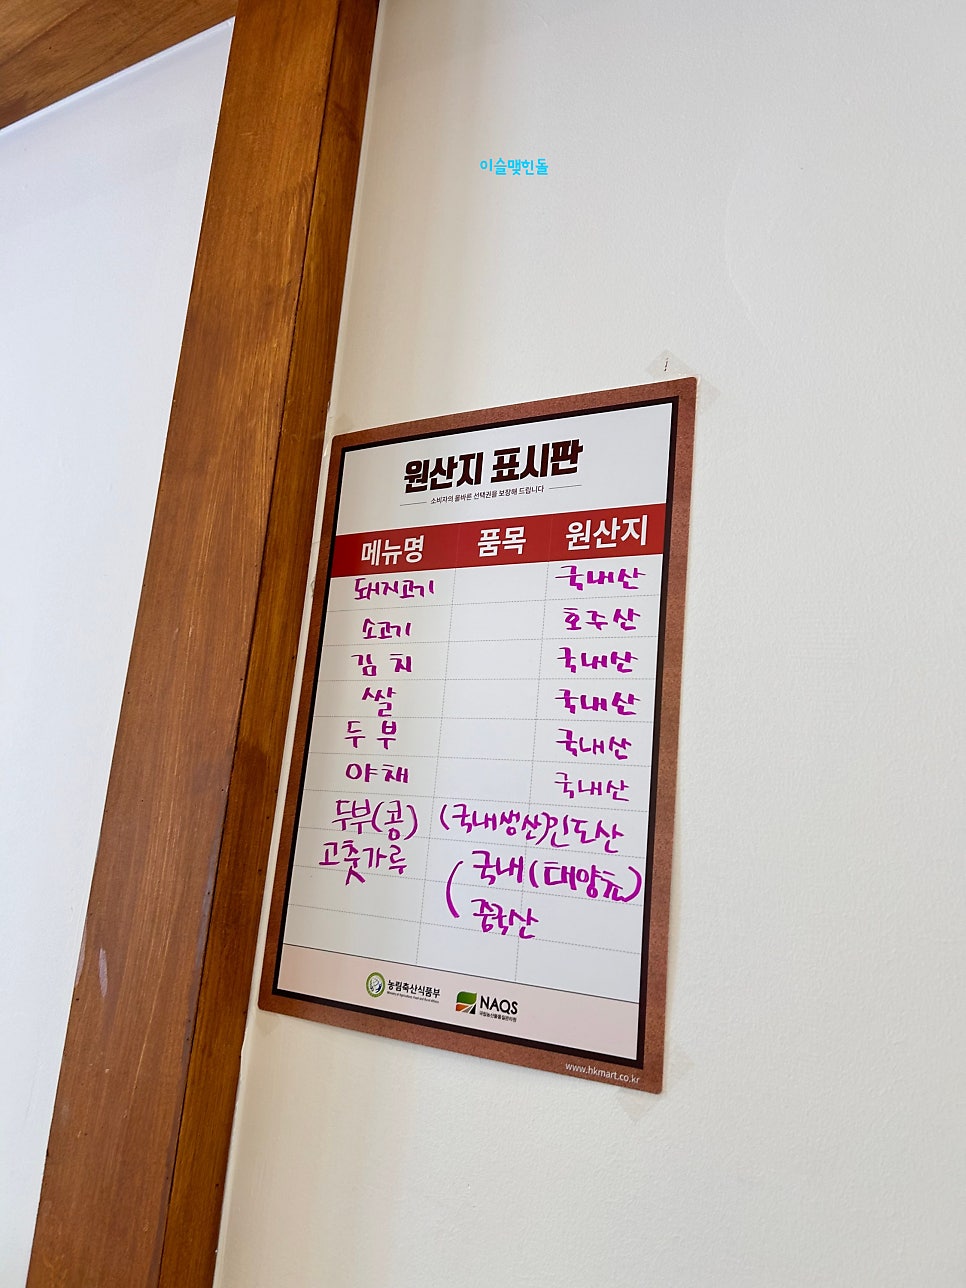 이슬맺힌돌
원산지 표시판
소비자의 올바른 선택권을 보장해 드립니다
메뉴명 품목 원산지
돼지고기 국내산
소고기 호주산
김치 국내산
쌀 국내산
두부 국내산
야채 국내산
두부(콩) (국내생산)인도산
고춧가루 (국내(태양초)
중국산
농림축산식품부
NAQS
국립농산물품질관리원
www.hkmart.co.kr